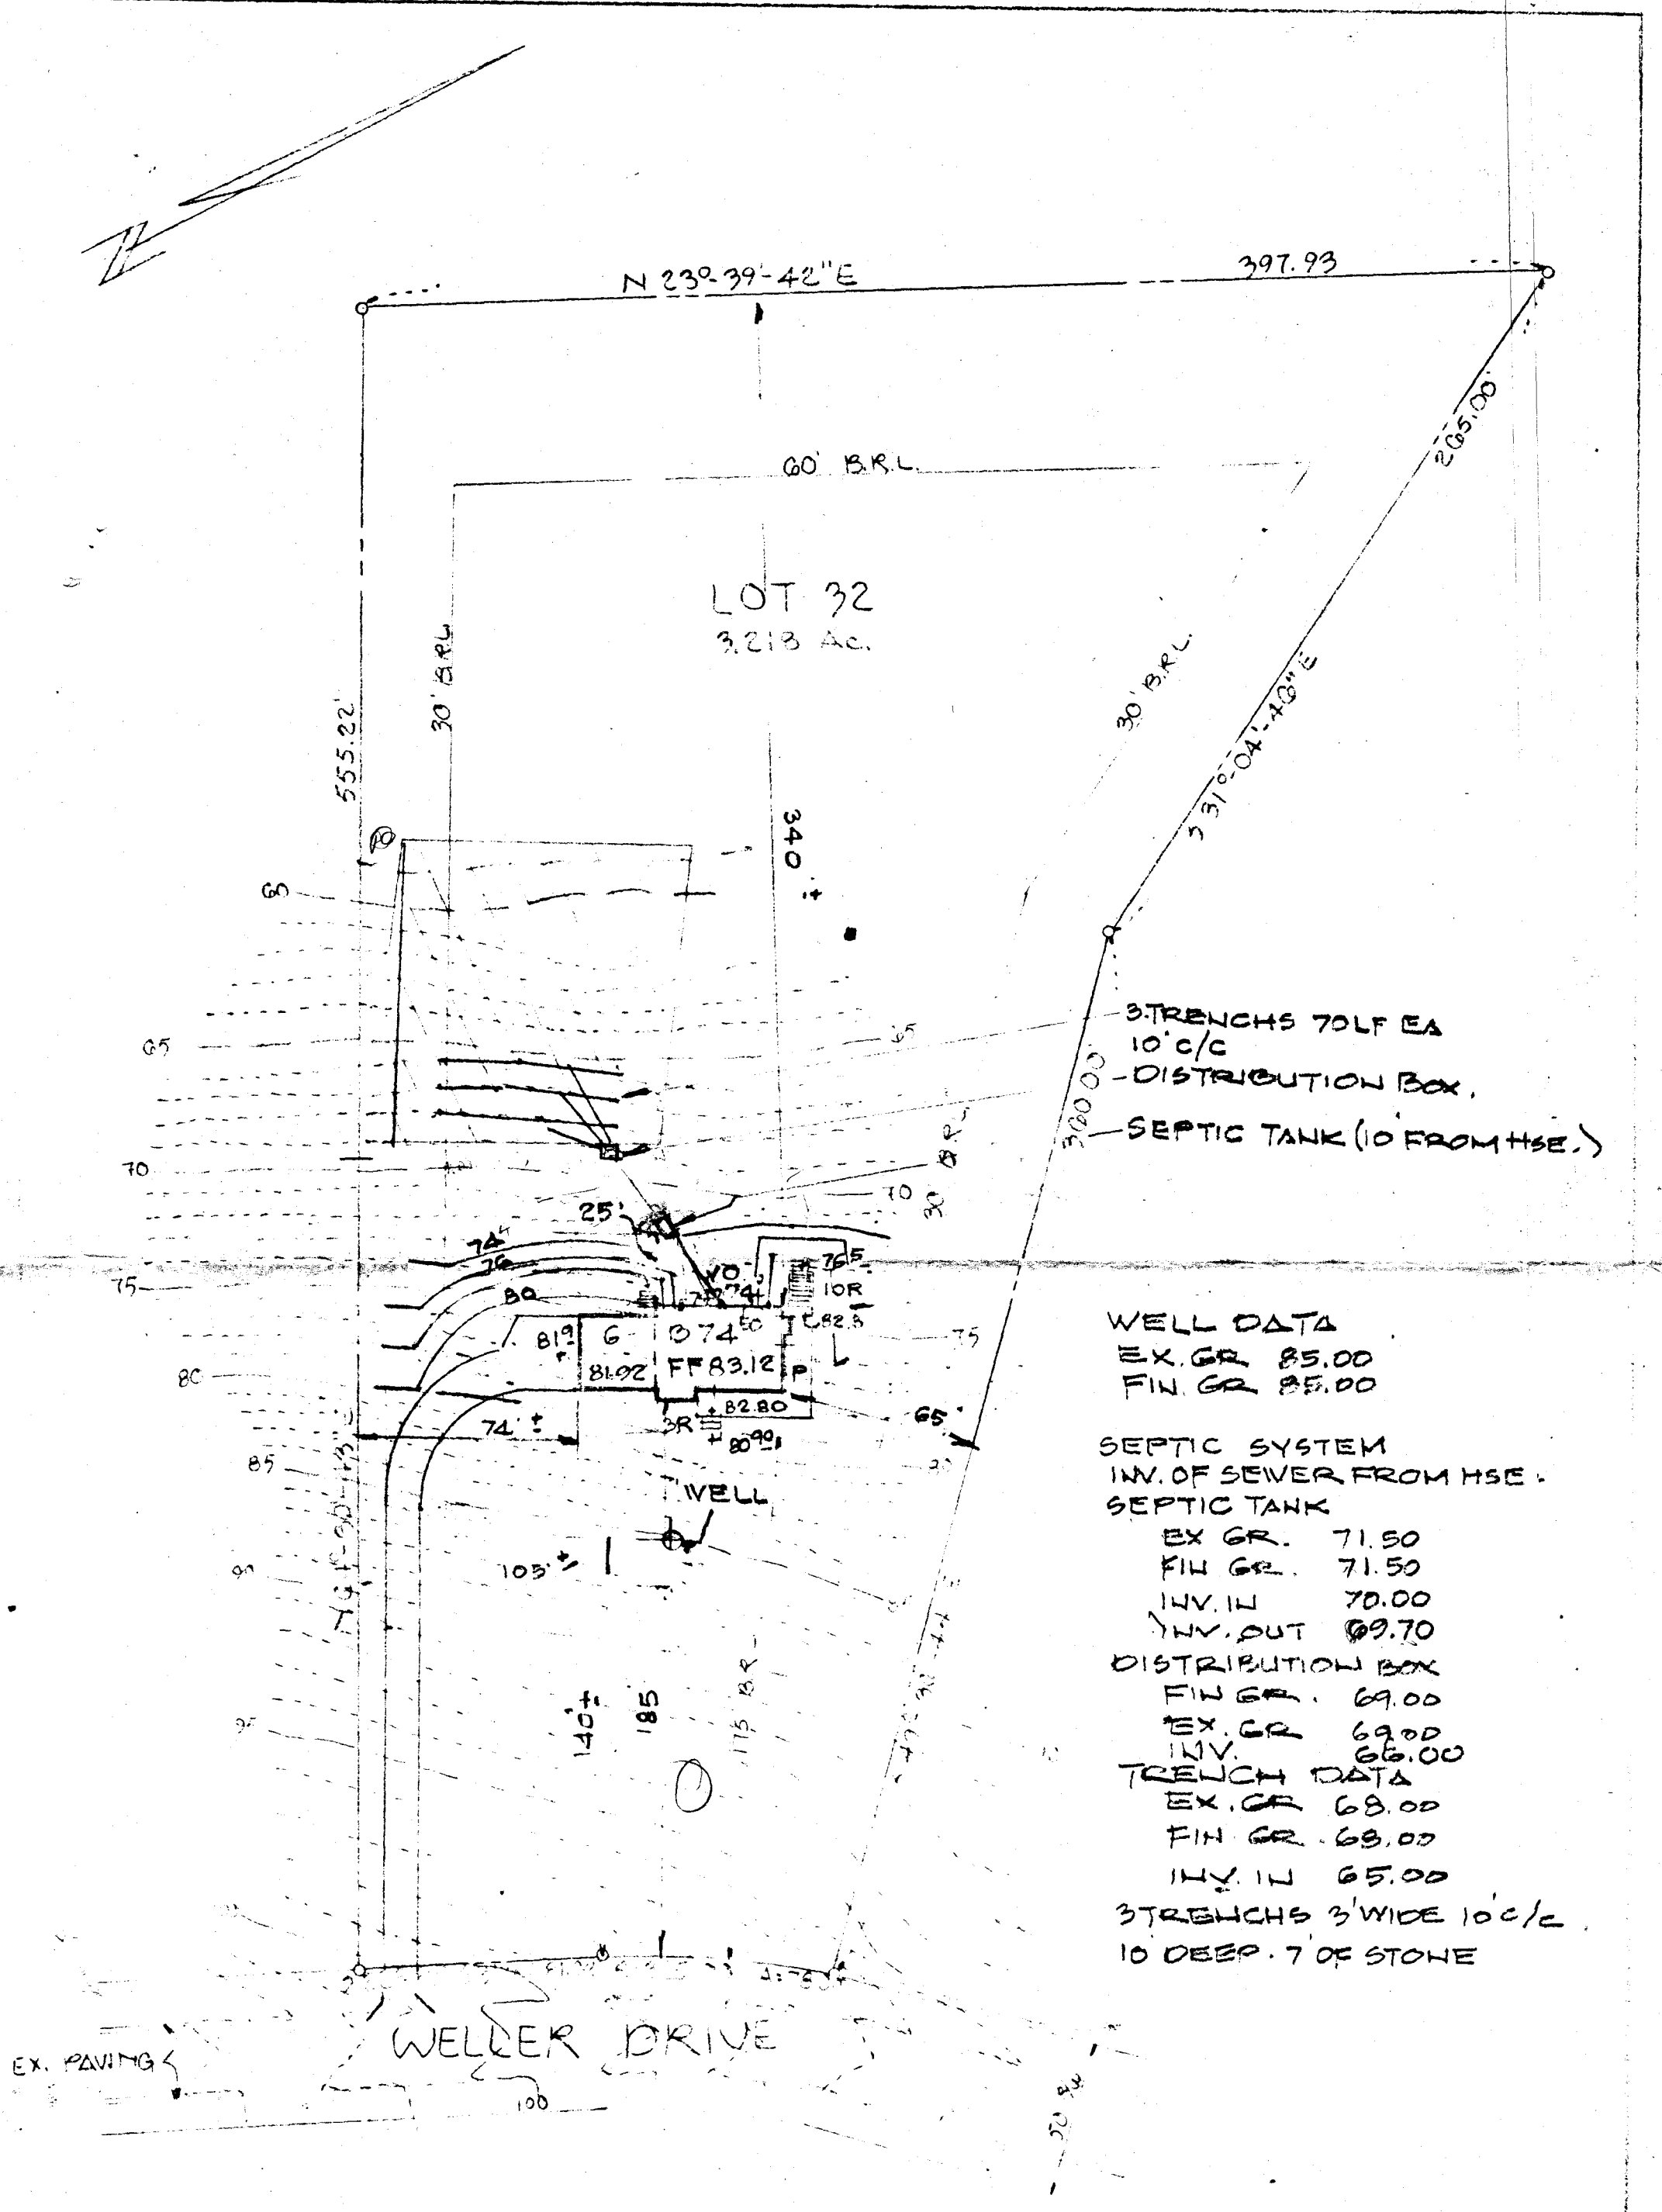 N 23°-39'-42" E
397.93
265.00'
60' B.R.L.
LOT 32
3.218 Ac.
30' B.R.L.
30' B.R.L.
555.22'
340'±
60
65
65
3 TRENCHS 70 LF EA
10' C/C
DISTRIBUTION BOX.
360.00'
SEPTIC TANK (10' FROM HSE.)
70
70
30' B.R.L.
25'
74
76
80
75
WO
76⁵
10R
82.5
81⁹
G
B 74⁵⁰
75
81.92
FF 83.12
P
80
82.80
3R
80⁹⁰
74'±
65'
85
WELL
105'±
90
140'±
185
WELL DATA
EX. GR 85.00
FIN. GR 85.00
SEPTIC SYSTEM
INV. OF SEWER FROM HSE.
SEPTIC TANK
EX GR. 71.50
FIN GR. 71.50
INV. IN 70.00
INV. OUT 69.70
DISTRIBUTION BOX
FIN GR. 69.00
EX. GR 69.00
INV. 66.00
TRENCH DATA
EX. GR 68.00
FIN GR. 68.00
INV. IN 65.00
3 TRENCHS 3' WIDE 10' C/C.
10' DEEP. 7' OF STONE
WELLER DRIVE
EX. PAVING
100